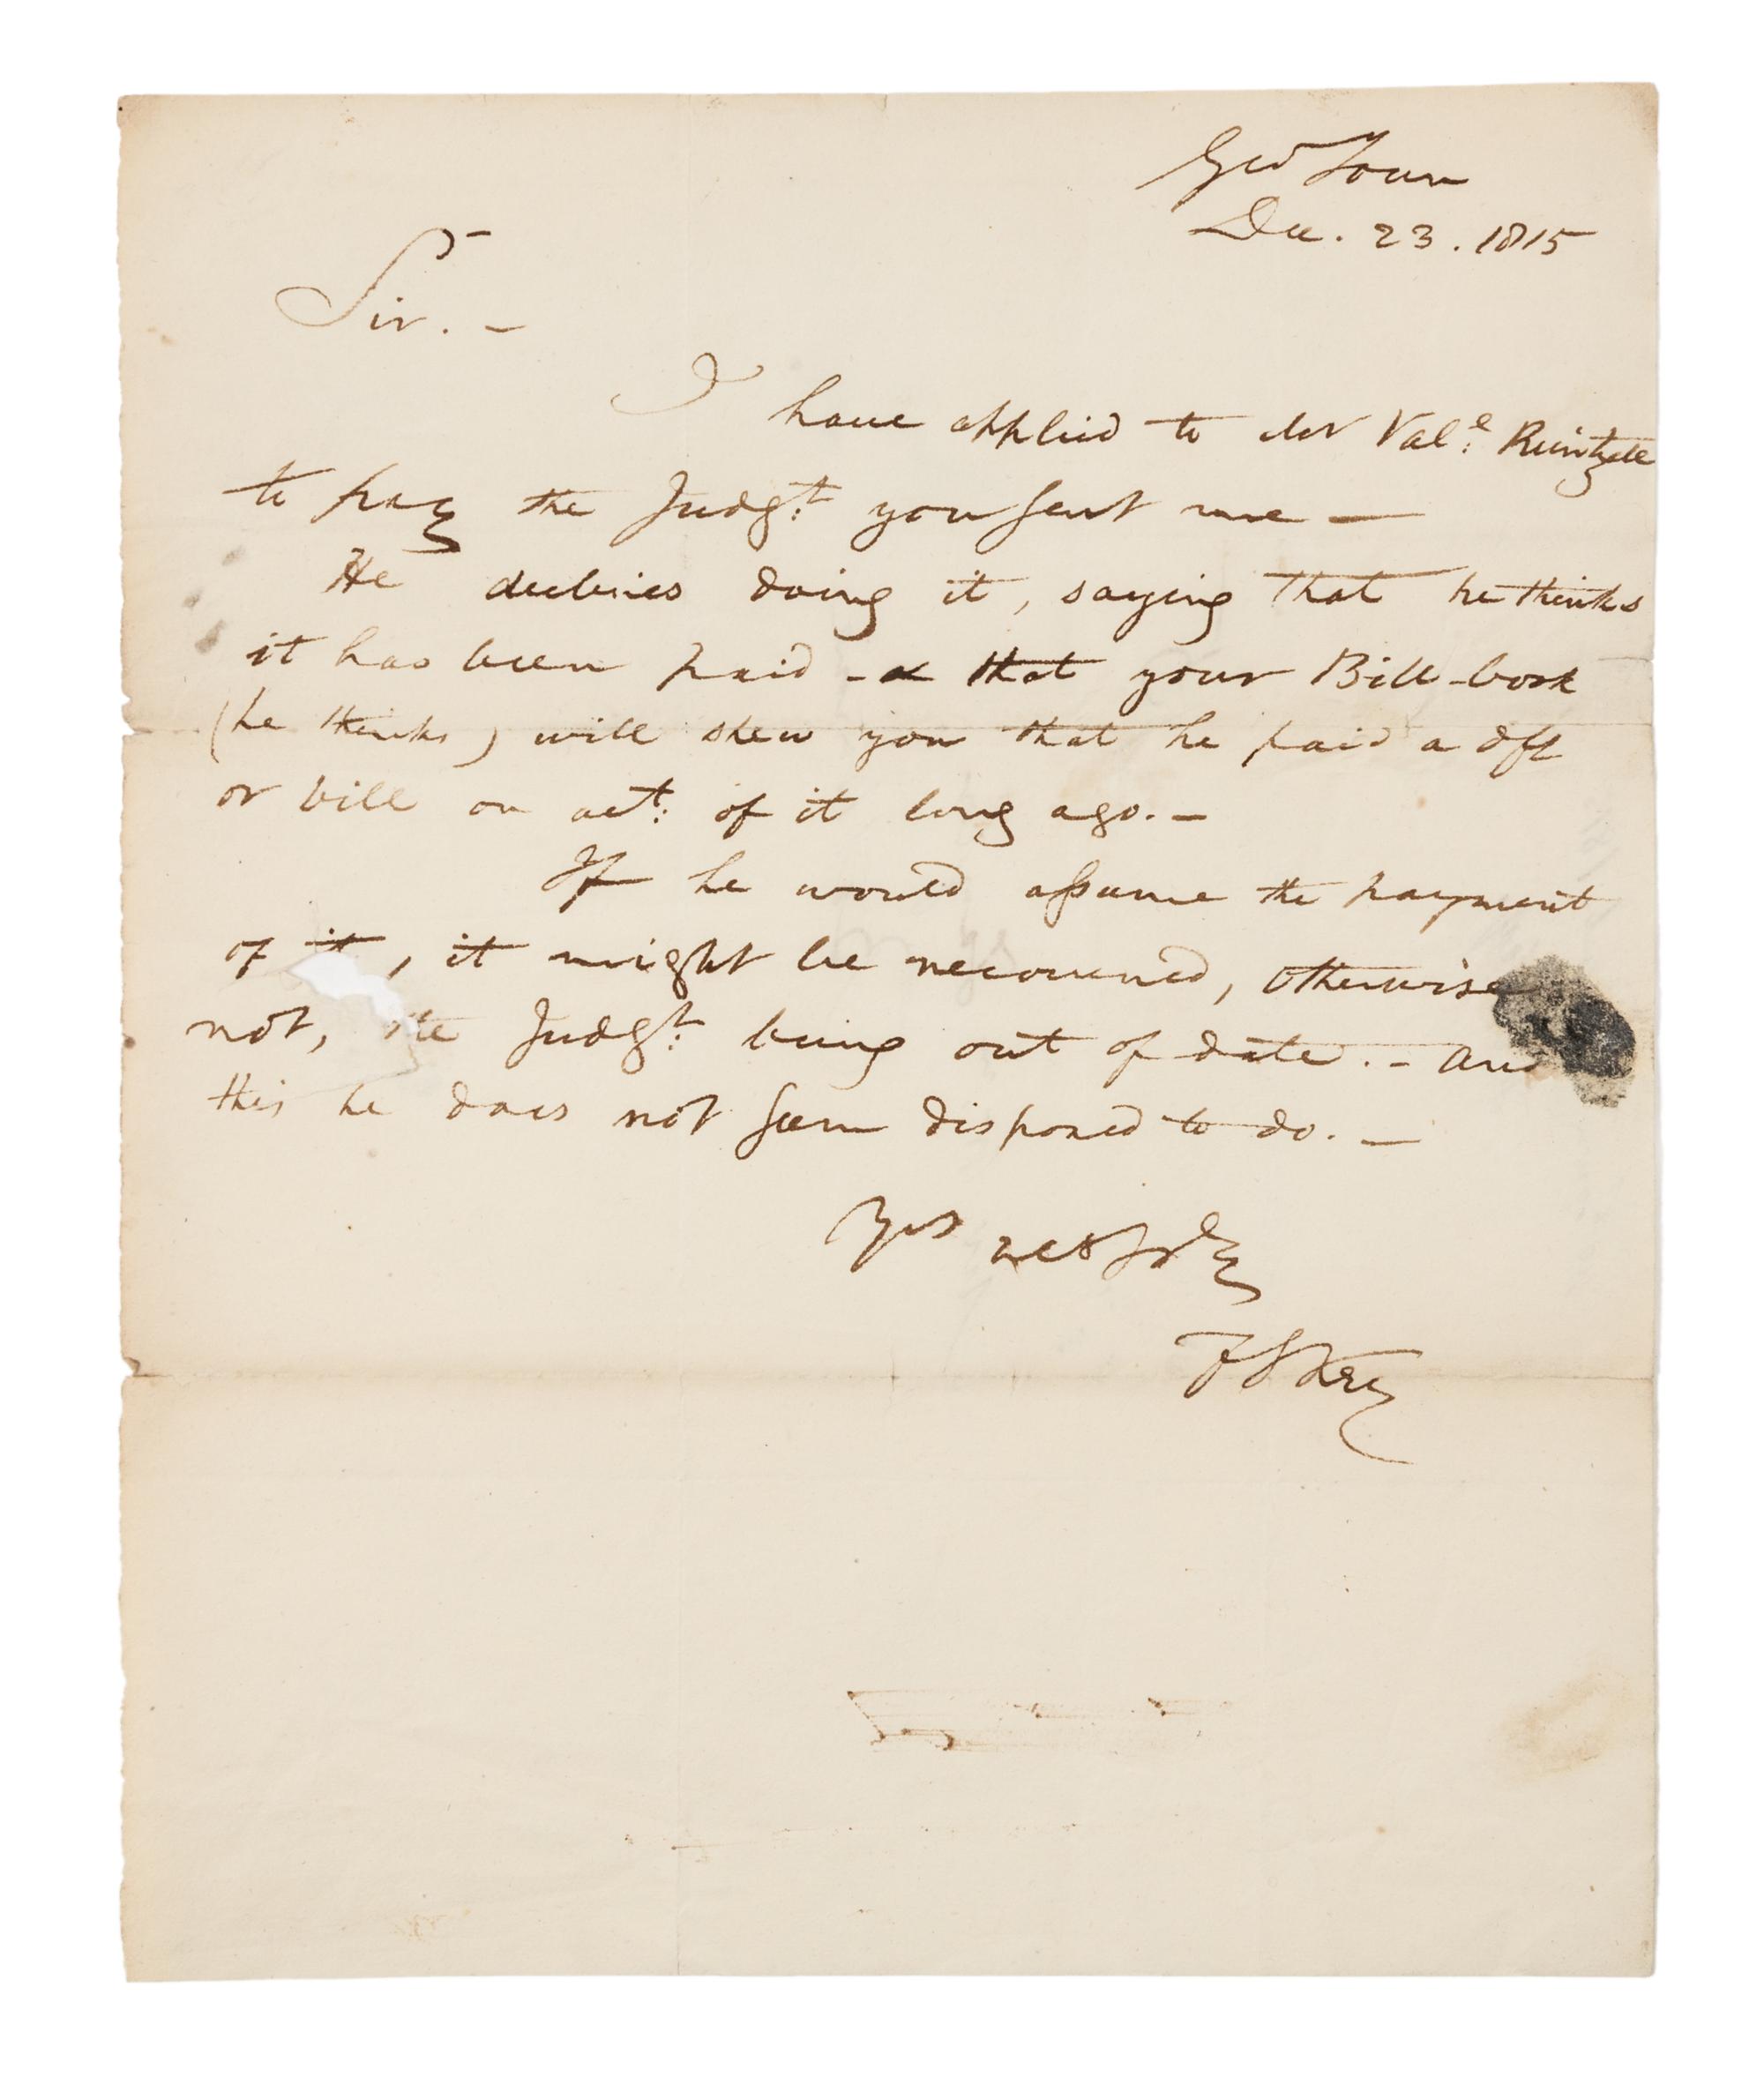 Geo Town
Dec. 23. 1815
Sir. -
I have applied to Mr Val.e Reintzell
to pay the Judg.t you sent me —
He declines doing it, saying that he thinks
it has been paid - & that your Bill-book
(he thinks) will shew you that he paid a dft
or bill on act. of it long ago. -
If he would assume the payment
of it, it might be recovered, otherwise
not, the Judg.t being out of date. - And
this he does not seem disposed to do. —
Yrs respy
F S Key